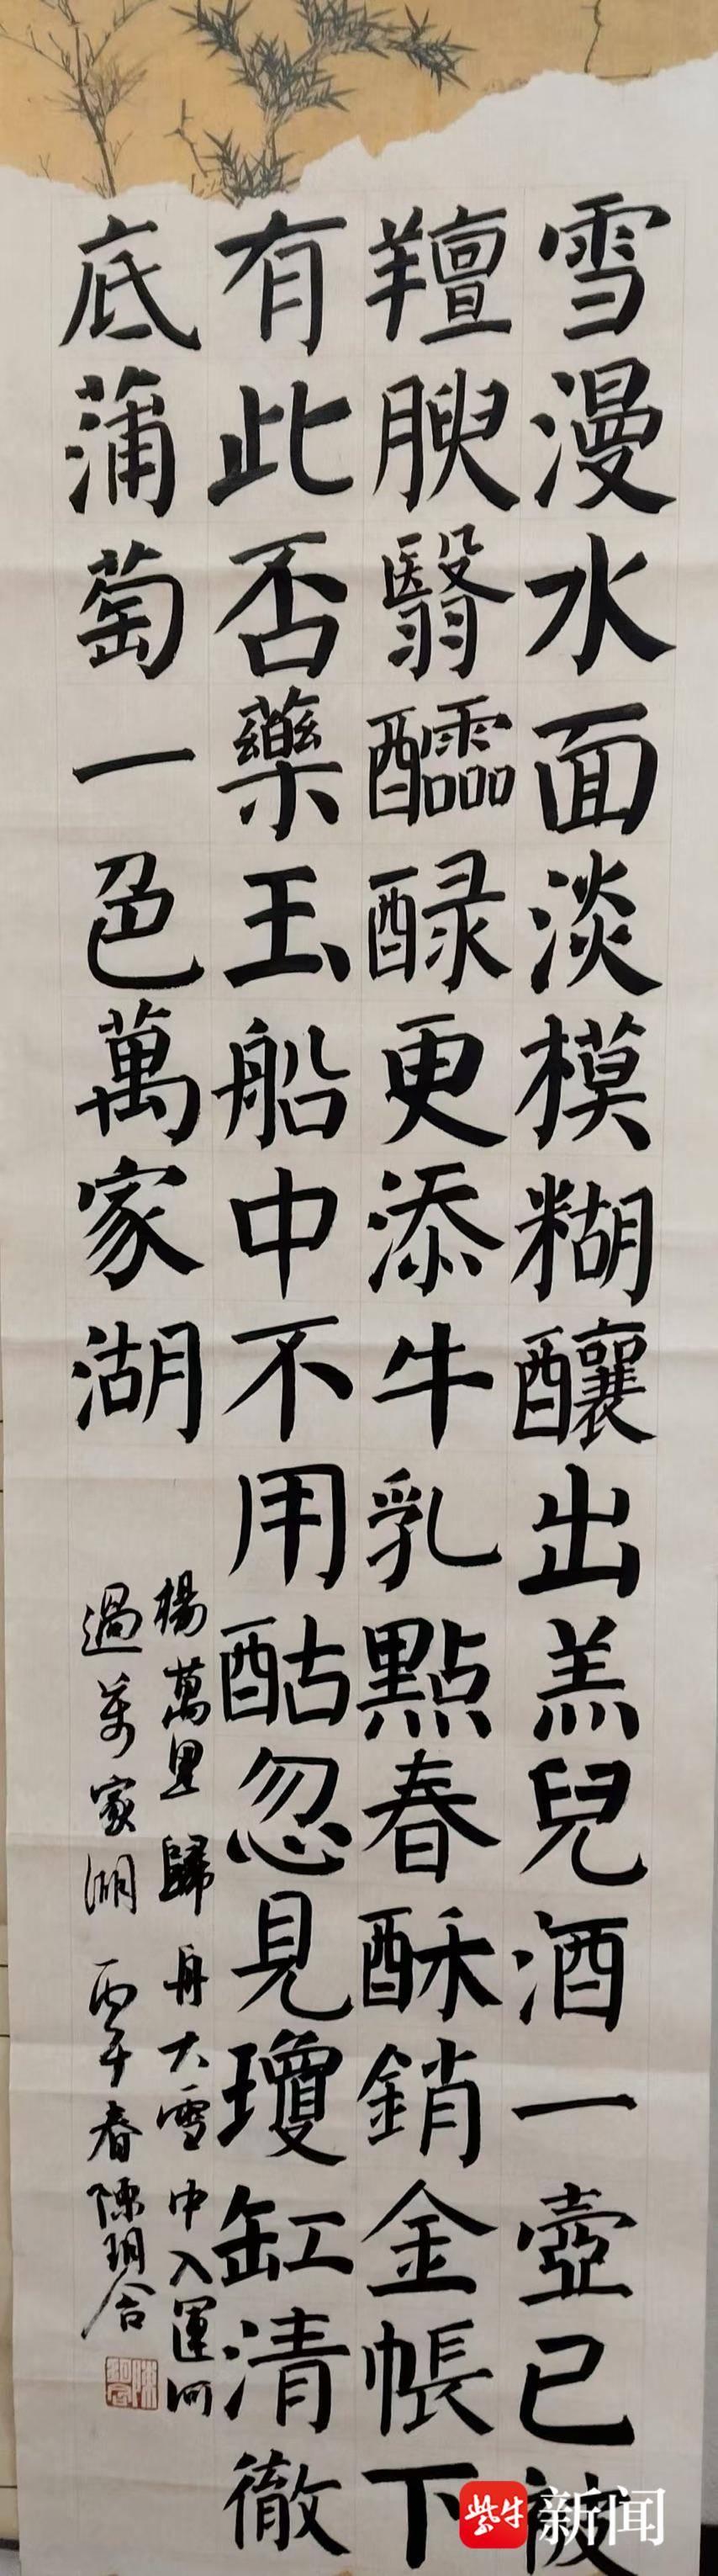 雪漫水面淡模糊釀出羔兒酒一壺已被
羶腴翳醽醁更添牛乳點春酥銷金帳下
有此否藥玉船中不用酤忽見瓊缸清徹
底蒲萄一色萬家湖
楊萬里歸舟大雪中入運河
過萬家湖 丙午春陳玥
紫牛新闻